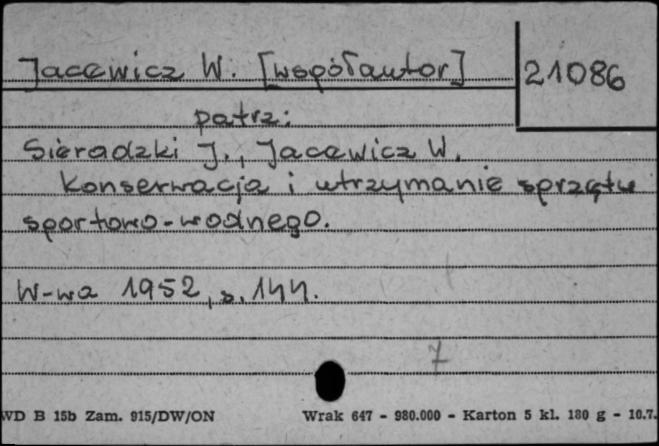 Jacewicz W. [współautor] 21086
patrz:
Sieradzki J., Jacewicz W.
Konserwacja i utrzymanie sprzętu
sportowo-wodnego.
W-wa 1952, s. 144.
7
WD B 15b Zam. 915/DW/ON Wrak 647 - 980.000 - Karton 5 kl. 180 g - 10.7.